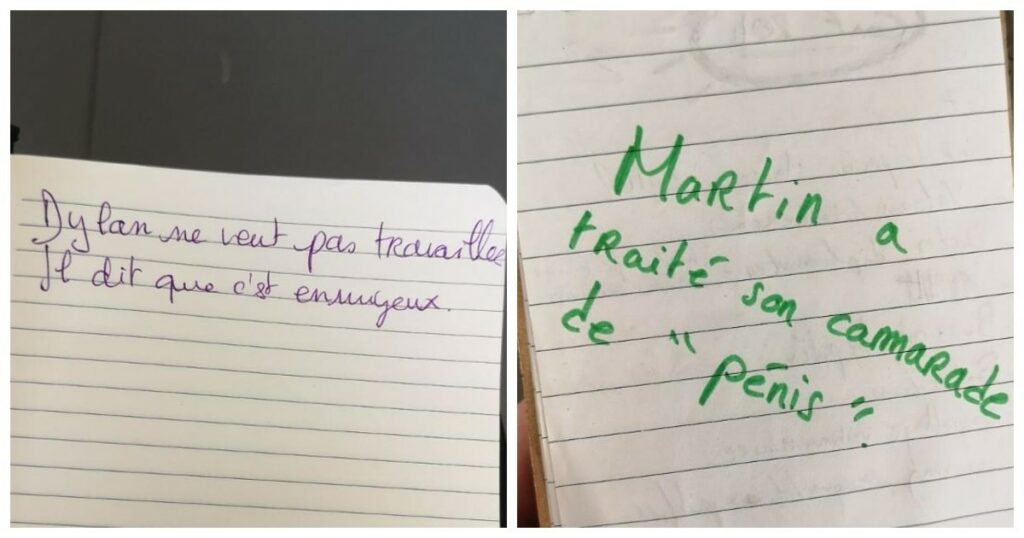 Dylan ne veut pas travailler
Il dit que c'est ennuyeux.
Martin a
traité son camarade
de "pénis".